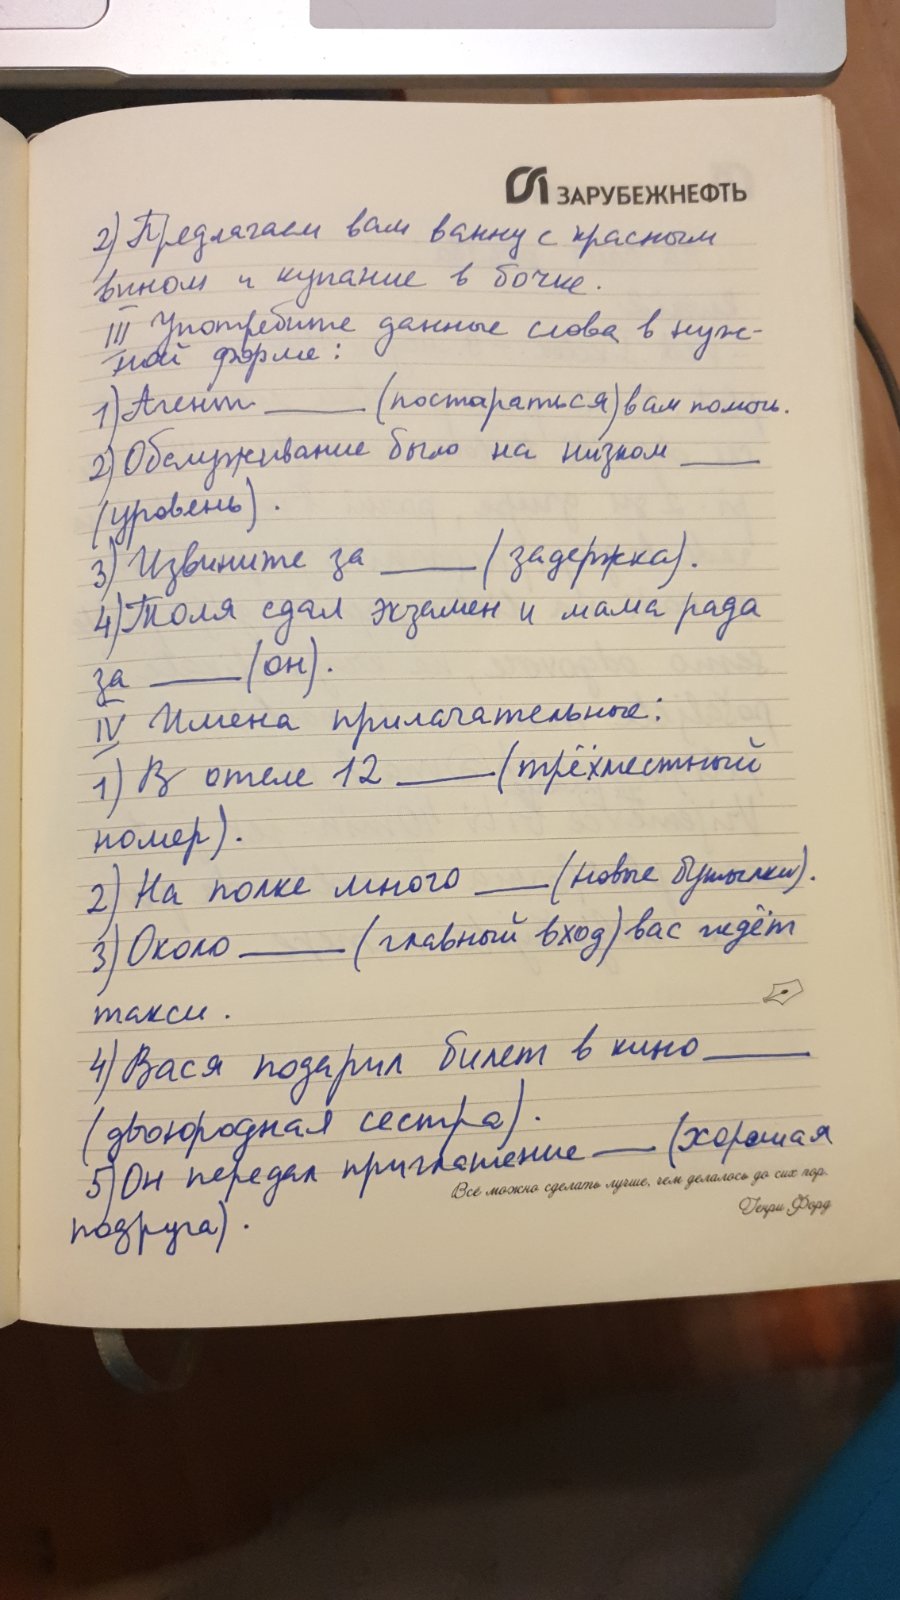 ЗАРУБЕЖНЕФТЬ
2) Предлагаем вам ванну с красным
вином и купание в бочке.
III Употребите данные слова в нуж-
ной форме:
1) Агент _____ (постараться) вам помочь.
2) Обслуживание было на низком ____
(уровень).
3) Извините за _____ (задержка).
4) Толя сдал экзамен и мама рада
за _____ (он).
IV Имена прилагательные:
1) В отеле 12 _____ (трёхместный
номер).
2) На полке много ____ (новые бутылки).
3) Около _____ (главный вход) вас ждёт
такси.
4) Вася подарил билет в кино _____
(двоюродная сестра).
5) Он передал приглашение ___ (хорошая
Все можно сделать лучше, чем делалось до сих пор.
Генри Форд
подруга).